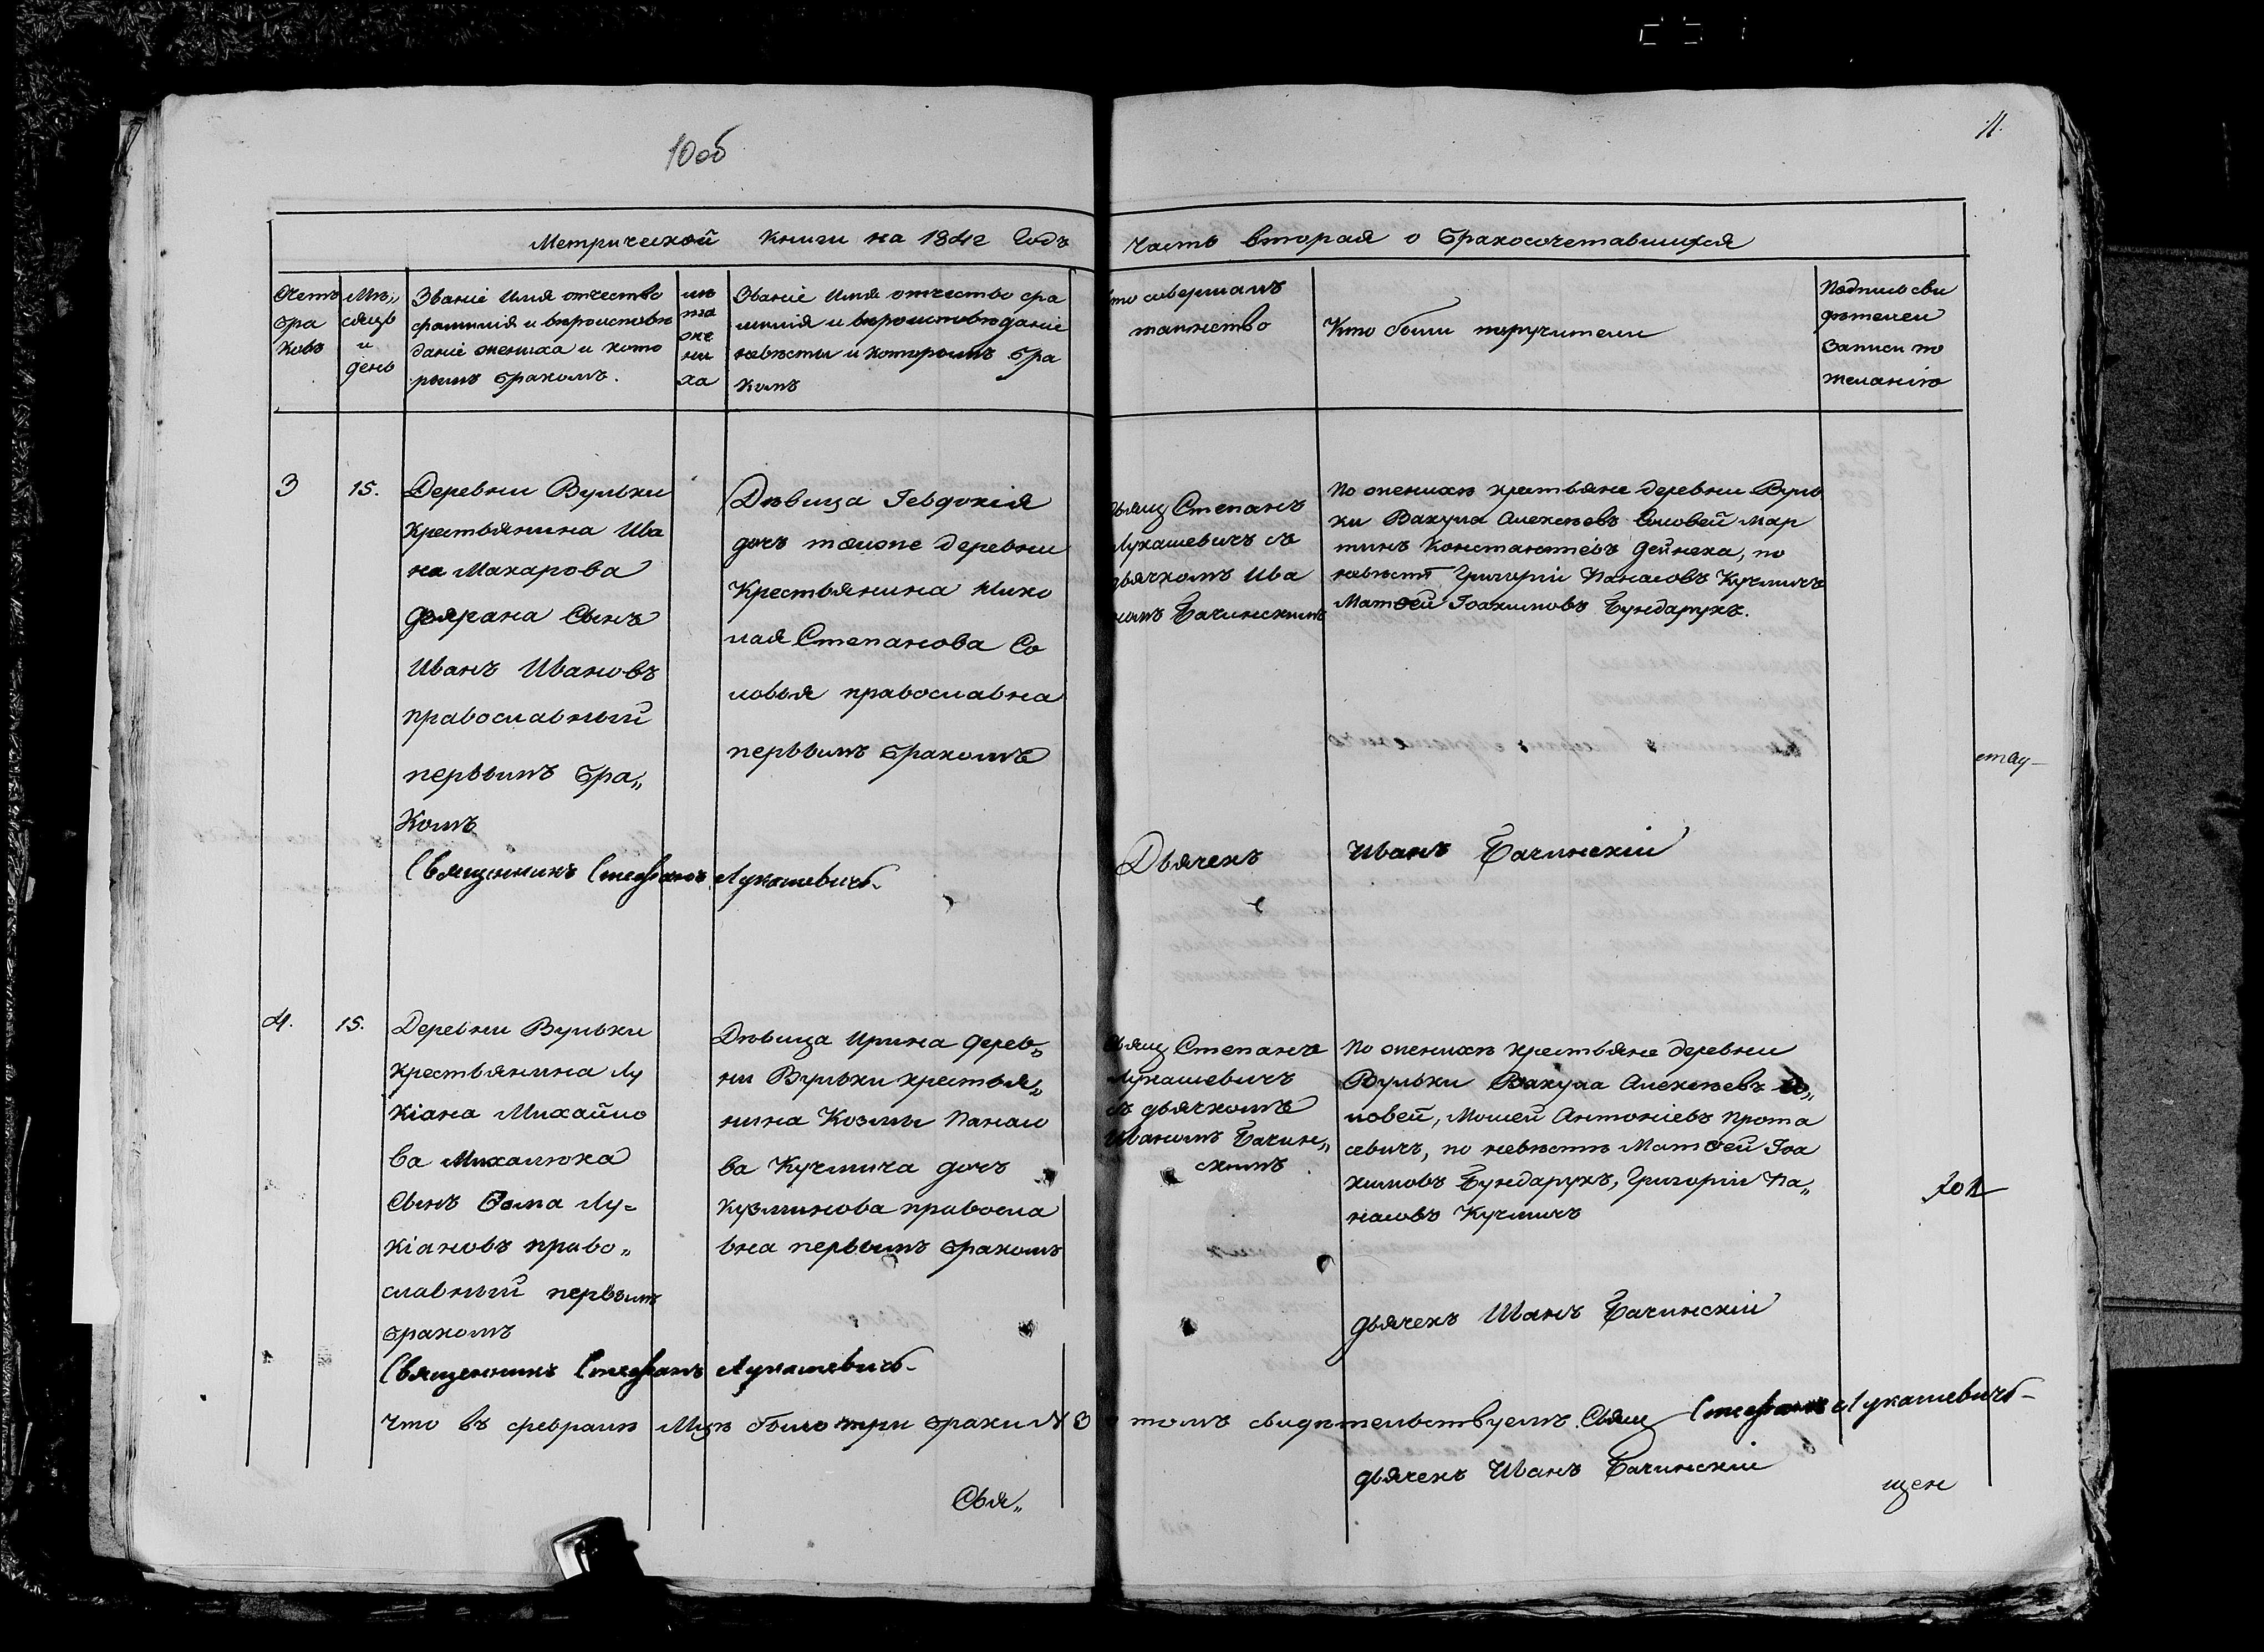 10 об
11.
Метрической Книги на 1842 Годъ
Часть вторая о бракосочетавшихся
Счетъ
бра
ковъ
Мѣ„
сяцъ
и
день
Званіе Имя отчество
фамилія и вѣроисповѣ
даніе жениха и кото
рымъ бракомъ.
лѣ
та
же
ни
ха
Званіе Имя отчество фа
милія и вѣроисповѣданіе
невѣсты и которымъ бра
комъ
то совершалъ
таинство
Кто были поручители
Подпись сви
дѣтелей
Записи по
желанію
3
15.
Деревни Вульки
Крестьянина Ива
на Макарова
Сынъ
Иванъ Ивановъ
православный
первымъ бра„
комъ
Дѣвица Іевдокія
дочъ тойже деревни
Крестьянина Нико
лая Степанова Со
ловья православна
первымъ бракомъ
Свящ Степанъ
Лукашевичъ съ
дьячкомъ Ива
номъ Бачинскимъ
По женихѣ крестьяне деревни Вуль
ки Вакула Алексѣевъ Соловей Мар
тинъ Константіевъ Дейнека, по
невѣстѣ Григорій Панасовъ Кучмичъ
Матѳей Іоакимовъ Бундарукъ.
Священникъ Стефанъ Лукашевичъ
Дьячекъ Иванъ Бачинскій
4.
15.
Деревни Вульки
Крестьянина Лу
кіана Михайло
ва Михалюка
Сынъ Ѳома Лу-
кіановъ право„
славный первымъ
бракомъ
Дѣвица Ирина дерев„
ни Вульки крестья„
нина Козмы Панасо
ва Кучмича дочъ
Кузминова правосла
вна первымъ бракомъ
Свящ Степанъ
Лукашевичъ
съ дьячкомъ
Иваномъ Бачин„
скимъ
По женихѣ крестьяне деревни
Вульки Вакула Алексѣевъ Со„
ловей, Мосей Антоніевъ Прота
севичъ, по невѣстѣ Матѳей Іоа
кимовъ Бундарукъ, Григорій Па„
насовъ Кучмичъ
дьячекъ Иванъ Бачинскій
Священникъ Стефанъ Лукашевичъ
Что въ февралѣ Мцѣ было три браки № 3
томъ свидѣтельствуемъ. Свящ Стефанъ Лукашевичъ
дьячекъ Иванъ Бачинскій
Свя„
щен